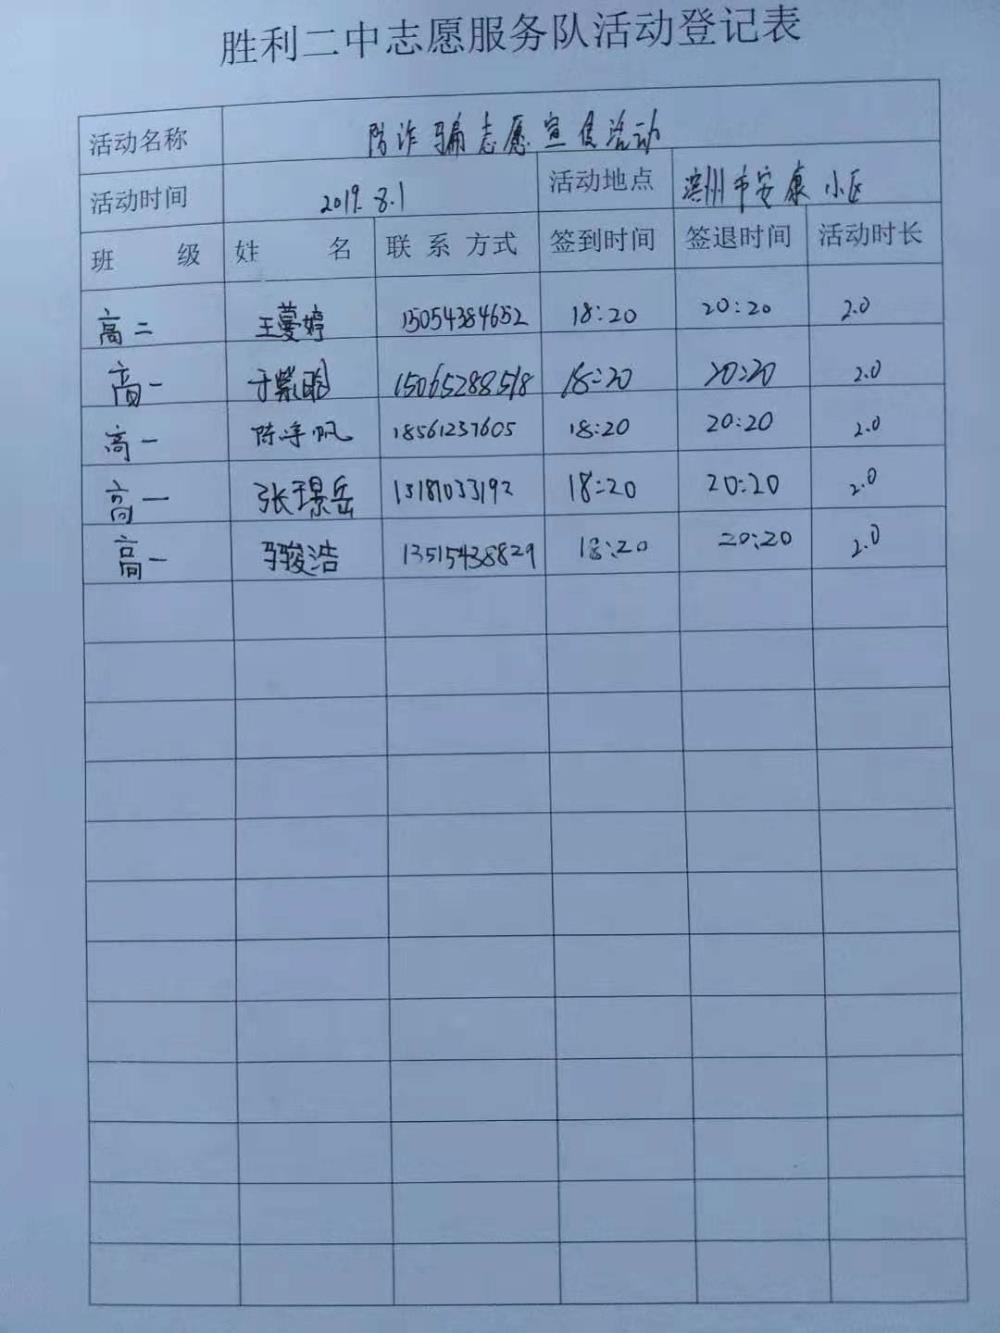 胜利二中志愿服务队活动登记表
活动名称 防诈骗志愿宣传活动
活动时间 2019.8.1 活动地点 滨州市安康小区
班 级 姓 名 联系方式 签到时间 签退时间 活动时长
高二 王蔓婷 15054384652 18:20 20:20 2.0
高一 于紫 15065288518 18:20 20:20 2.0
高一 陈 帆 18561237605 18:20 20:20 2.0
高一 张璟岳 13181033192 18:20 20:20 2.0
高一 马骏浩 13515438829 18:20 20:20 2.0